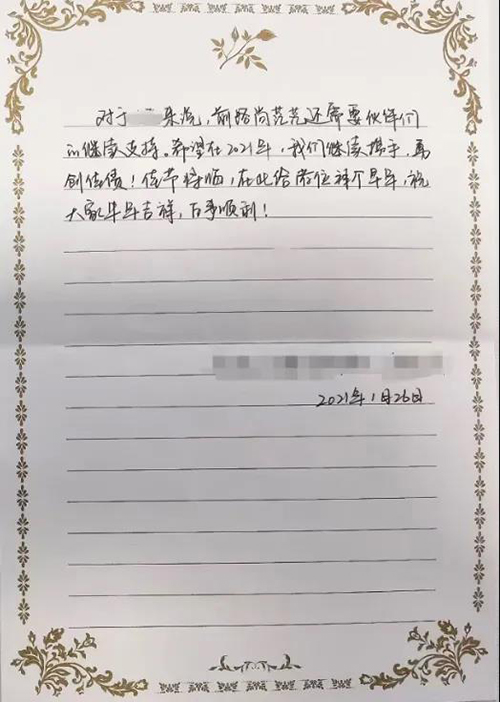 对于来说,前路尚茫茫,还需要伙伴们
的继续支持。希望在2021年,我们继续携手,再
创佳绩!佳节将临,在此给诸位拜个早年,祝
大家牛年吉祥,万事顺利!
2021年1月26日